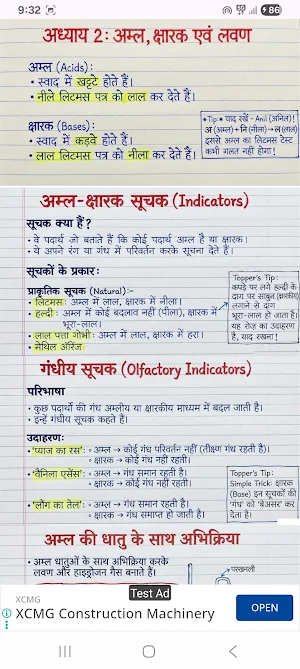 9:32
86
अध्याय 2: अम्ल, क्षारक एवं लवण
अम्ल (Acids):
• स्वाद में खट्टे होते हैं।
• नीले लिटमस पत्र को लाल कर देते हैं।
क्षारक (Bases):
• स्वाद में कड़वे होते हैं।
• लाल लिटमस पत्र को नीला कर देते हैं।
•Tip:• याद रखें - Anil (अनिल)!
अ (अम्ल) + नि (नीला) → ल (लाल)
इससे अम्ल का लिटमस टेस्ट
कभी गलत नहीं होगा!
अम्ल-क्षारक सूचक (Indicators)
सूचक क्या हैं?
• वे पदार्थ जो बताते हैं कि कोई पदार्थ अम्ल है या क्षारक।
• ये अपने रंग या गंध में परिवर्तन करके सूचना देते हैं।
सूचकों के प्रकार:
प्राकृतिक सूचक (Natural):-
• लिटमस: अम्ल में लाल, क्षारक में नीला।
• हल्दी: अम्ल में कोई बदलाव नहीं (पीला), क्षारक में
भूरा-लाल।
• लाल पत्ता गोभी: अम्ल में लाल, क्षारक में हरा।
• मेथिल ऑरेंज
Topper's Tip:
कपड़े पर लगे हल्दी के
दाग पर साबुन (क्षारकीय)
लगाने से दाग
भूरा-लाल हो जाता है।
यह रोज़ का उदाहरण
है, याद रखना!
गंधीय सूचक (Olfactory Indicators)
परिभाषा
• कुछ पदार्थों की गंध अम्लीय या क्षारकीय माध्यम में बदल जाती है।
• इन्हें गंधीय सूचक कहते हैं।
उदाहरण:
•'प्याज का रस': • अम्ल → कोई गंध परिवर्तन नहीं (तीक्ष्ण गंध रहती है)।
• क्षारक → कोई गंध नहीं रहती।
•'वैनिला एसेंस': • अम्ल → गंध समान रहती है।
• क्षारक → कोई गंध नहीं रहती।
•'लौंग का तेल': • अम्ल → गंध समान रहती है।
• क्षारक → गंध समाप्त हो जाती है।
Topper's Tip:
Simple Trick: क्षारक
(Base) इन सूचकों की
'गंध' को 'बेअसर' कर
देता है।
अम्ल की धातु के साथ अभिक्रिया
• अम्ल धातुओं के साथ अभिक्रिया करके
लवण और हाइड्रोजन गैस बनाते हैं।
परखनली
Test Ad
XCMG
XCMG Construction Machinery
OPEN